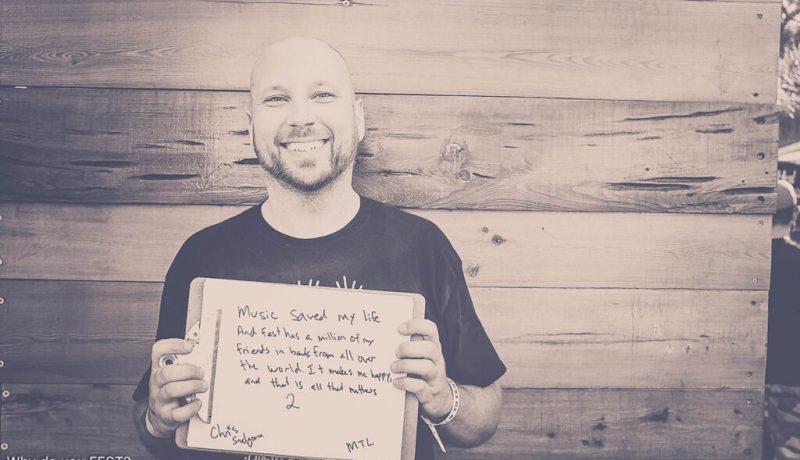 Music saved my life
And Fest has a million of my
friends in bands from all over
the world. It makes me happy,
and that is all that matters
2
Chris
MTL
Why do you FEST?